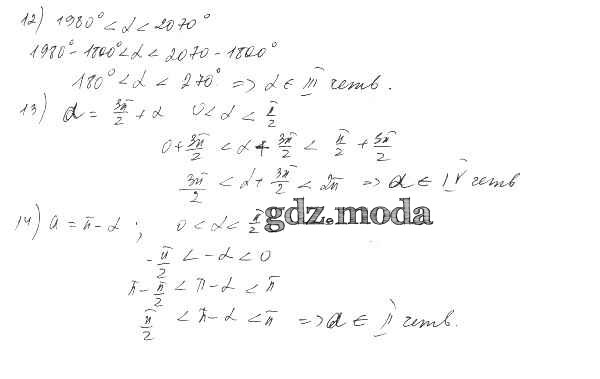 12) 1980° < α < 2070°
1980° - 1800° < α < 2070 - 1800°
180° < α < 270° => α ∈ III четв.
13) α = 3π/2 + α 0 < α < π/2
0 + 3π/2 < α + 3π/2 < π/2 + 3π/2
3π/2 < α + 3π/2 < 2π => α ∈ IV четв
14) a = π - α ; 0 < α < π/2
gdz.moda
-π/2 < -α < 0
π - π/2 < π - α < π
π/2 < π - α < π => α ∈ II четв.